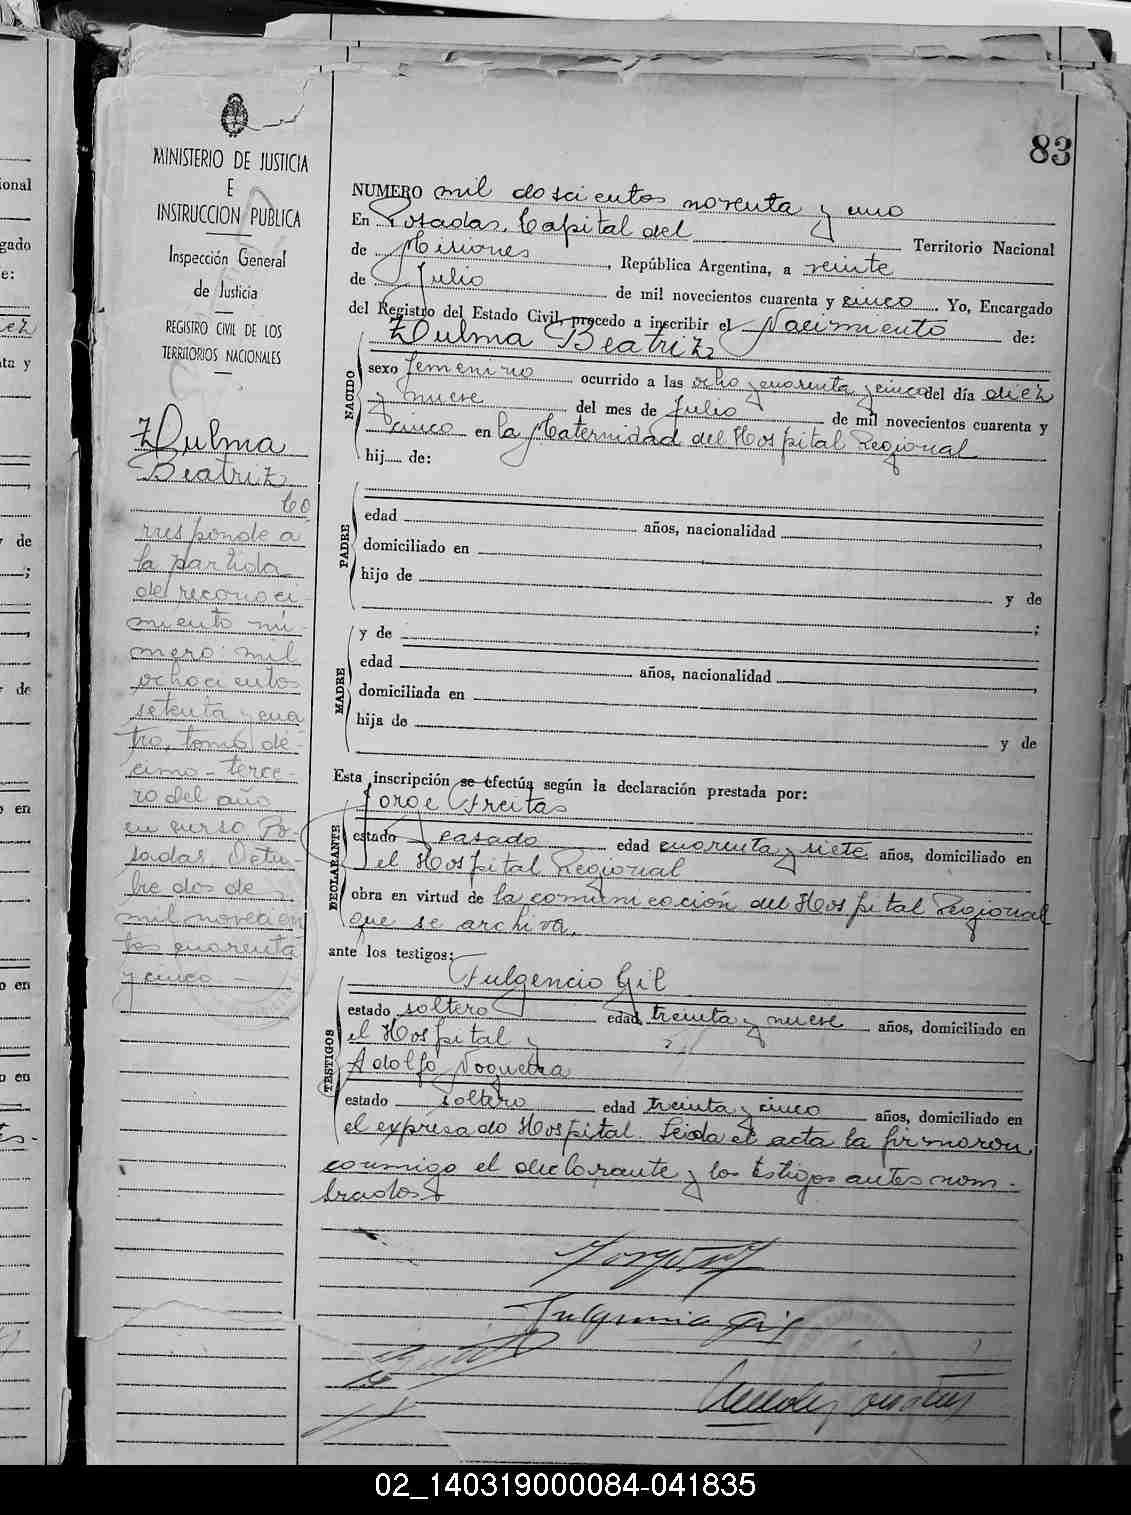 83
MINISTERIO DE JUSTICIA
E
INSTRUCCION PUBLICA
Inspección General
de Justicia
REGISTRO CIVIL DE LOS
TERRITORIOS NACIONALES
Zulma
Beatriz
Co
rresponde a
la partida
del reconoci-
miento nú-
mero: mil
ochocientos
setenta y cua
tro, tomo dé-
cimo-terce-
ro del año
en curso. Po-
sadas, Octu-
bre dos de
mil novecien
tos cuarenta
y cinco
NUMERO mil doscientos noventa y uno
En Posadas, Capital del Territorio Nacional
de Misiones, República Argentina, a veinte
de Julio de mil novecientos cuarenta y cinco. Yo, Encargado
del Registro del Estado Civil, procedo a inscribir el Nacimiento de:
Zulma Beatriz
NACIDO
sexo femenino ocurrido a las ocho y cuarenta y cinco del día diez
y nueve del mes de Julio de mil novecientos cuarenta y
cinco en la Maternidad del Hospital Regional
hij..... de:
PADRE
edad años, nacionalidad
domiciliado en
hijo de y de
;
MADRE
y de
edad años, nacionalidad
domiciliada en
hija de y de
Esta inscripción se efectúa según la declaración prestada por:
DECLARANTE
Jorge Freitas
estado casado edad cuarenta y siete años, domiciliado en
el Hospital Regional
obra en virtud de la comunicación del Hospital Regional
que se archiva.
ante los testigos:
TESTIGOS
Fulgencio Gil
estado soltero edad treinta y nueve años, domiciliado en
el Hospital y
Adolfo Nogueira
estado soltero edad treinta y cinco años, domiciliado en
el expresado Hospital. Leida el acta la firmaron
conmigo el declarante y los testigos antes nom-
brados
Fulgencio Gil
02_140319000084-041835